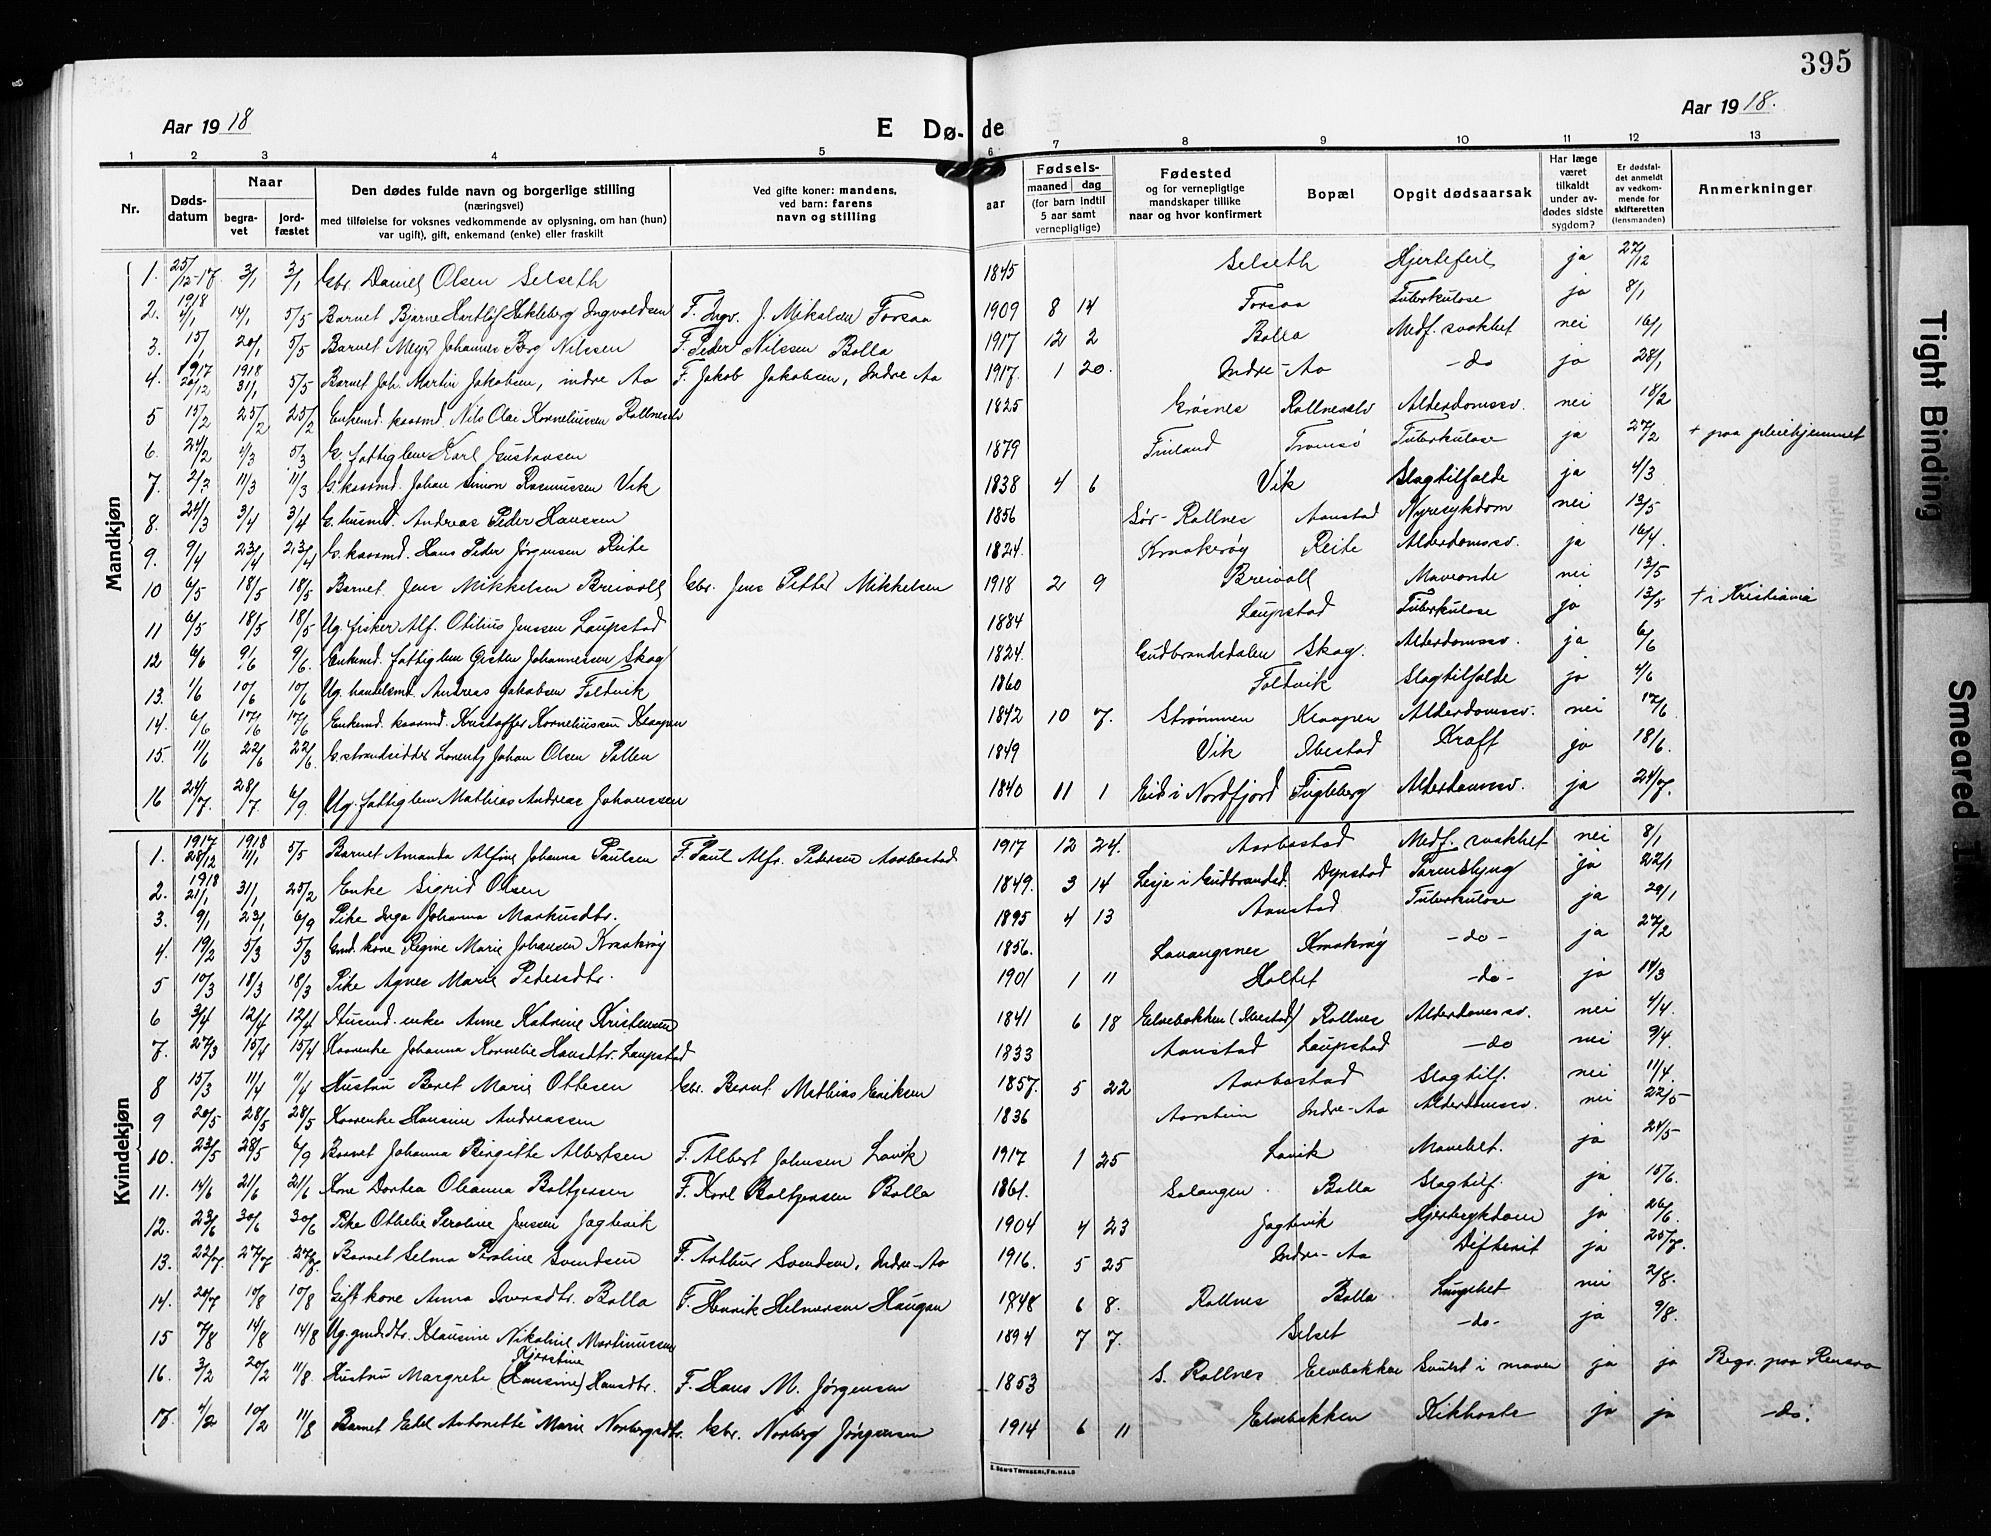 395
Aar 1918
E Dø- de
Aar 1918.
1 2 3 4 5 6 7 8 9 10 11 12 13
Nr.
Døds-
datum
Naar
begra-
vet
jord-
fæstet
Den dødes fulde navn og borgerlige stilling
(næringsvei)
med tilføielse for voksnes vedkommende av oplysning, om han (hun)
var ugift), gift, enkemand (enke) eller fraskilt
Ved gifte koner: mandens,
ved barn: farens
navn og stilling
aar
Fødsels-
maaned dag
(for barn indtil
5 aar samt
vernepligtige)
Fødested
og for vernepligtige
mandskaper tillike
naar og hvor konfirmert
Bopæl
Opgit dødsaarsak
Har læge
været
tilkaldt
under av-
dødes sidste
sygdom?
Er dødsfal-
det anmeldt
av vedkom-
mende for
skifteretten
(lensmanden)
Anmerkninger
Mandkjøn
1. 25/12-17 3/1 3/1 Gbr. Daniel Olsen Selseth 1845 Selseth Hjertefeil ja 27/12
2. 1918 4/1 14/1 5/5 Barnet Bjarne Hartløf Hekleberg Ingvaldsen F. Ingv. J. Mikalsen Forsaa 1909 8 14 Forsaa Tuberkulose ja 8/1
3. 15/1 20/1 5/5 Barnet Meyer Johannes Berg Nilssen F. Peder Nilssen Bolla 1917 12 2 Bolla Medf. svakhet nei 16/1
4. 1917 20/12 1918 31/1 5/5 Barnet Joh. Martin Jakobsen, indre Aa F. Jakob Jakobsen, Indre Aa 1917. 1 20. Indre-Aa -do ja 28/1
5 15/2 25/2 25/2 Enkemd. kaarmd. Nils Olai Korneliussen Rollneselv 1825 Grøsnes Rollneselv Alderdomssv. nei 18/2
6. 24/2 1/3 5/3 G. fattiglem Karl Gustavsen 1879 Finland Tromsø Tuberkulose ja 27/2 + paa pleiehjemmet
7. 2/3 11/3 11/3 G. kaarmd. Johan Simon Rasmussen Vik 1838 4 6 Vik Slagtilfælde ja 4/3
8. 24/3 3/4 3/4 G. husmd. Andreas Peder Hanssen 1856 Sør-Rollnes Aanstad Nyresykdom nei 13/5
9. 9/4 23/4 23/4 G. kaarmd. Hans Peder Jørgensen Reite 1824. Kraakerøy Reite Alderdomssv. ja 16/4.
10 6/5 18/5 18/5 Barnet Jens Mikkelsen Breivoll Gbr. Jens Petter Mikkelsen 1918 2 9 Breivoll Maveonde nei 13/5
11 6/5 18/5 18/5 Ug. fisker Alf. Otilius Jenssen Laupstad 1884 Laupstad Tuberkulose ja 13/5 + i Kristiania
12 6/6 9/6 9/6. Enkemd. fattiglem Johannessen Skog 1824. Gudbrandsdalen Skog. Alderdomssv. ja 6/6
13. 1/6 10/6 10/6 Ug. handelsmd. Andreas Jakobsen Foldvik 1860 Foldvik Slagtilfælde ja 4/6
14. 6/6 17/6 17/6 Enkemd. kaarmd. Kristoffer Korneliussen Kraapen 1842 10 7. Strømmen Kraapen Alderdomssv. nei 17/6.
15. 11/6 22/6 22/6. G. strandsidder Lorentz Johan Olsen Pollen 1849 Vik Ibestad Kræft ja 18/6.
16 24/7. 28/7 6/9 Ug. fattiglem Mathias Andreas Johanssen 1840 11 1 Eid i Nordfjord Fugleberg Alderdomssv. ja 24/7.
Kvindekjøn
1. 1917 28/12 1918 11/1 5/5 Barnet Amanda Alfine Johanna Paulsen F. Paul Alfr. Pedersen Aarbostad 1917 12 24. Aarbostad Medf. svakhet nei 8/1
2. 1918 21/1 31/1 25/2 Enke Sigrid Olsen 1849. 3 14 Lesje i Gudbrandsd. Dyrstad Tarmslyng ja 22/1
3. 9/1 23/1 6/9 Pike Inga Johanna Markusdtr. 1895 4 13 Aanstad Tuberkulose ja 29/1
4. 19/2 5/3 5/3 Gmd. kone Regine Marie Johansen Kraakrøy 1856. Lavangsnes Kraakrøy -do- ja 27/2
5 10/3 18/3 18/3 Pike Agnes Marie Pedersdtr. 1901 1 11 Holtet -do- ja 14/3
6 3/4 12/4 12/4 Husmd. enke Anne Katrine Kristensen 1841 6 18 Elvebakken (Ibestad) Rollnes Alderdomssv. nei 4/4.
7. 27/3 15/4 15/4 Kaarenke Johanna Kornelie Hansdtr. Laupstad 1833 Aanstad Laupstad -do nei 9/4.
8 15/3 11/4 11/4 Hustru Beret Marie Ottesen Gbr. Bernt Mathias Eriksen 1857. 5 22 Aarbostad Slagtilf. nei 11/4.
9 20/5 28/5 28/5 Kaarenke Hansine Andreassen 1836 Aarstein Indre-Aa Alderdomssv. nei 22/5
10. 23/5 28/5 6/9 Barnet Johanna Birgitte Albertsen F. Albert Johnsen Lavik 1917 1 25 Lavik Mavebet. ja 24/5
11. 14/6 21/6 21/6 Kone Dortea Olianna Boltzersen F. Karl Boltzersen Bolla 1861. Salangen. Bolla Slagtilf. ja 15/6.
12. 23/6 30/6 30/6 Pike Othelie Peroline Jenssen Jagtvik 1904 4 23 Jagtvik Hjertesykdom ja 26/6.
13. 22/7. 27/7 27/7. Barnet Selma Peroline Svendsen F. Arthur Svendsen, Indre-Aa 1916. 5 25 Indre-Aa Difterit ja 25/7.
14. 20/7 10/8 10/8 Gift kone Anna Iversdtr. Bolla F. Henrik Helmersen Haugan 1848 6 8. Rollnes Bolla Lungebet nei 2/8.
15 7/8 14/8 14/8 Ug. gmd.dtr. Klausine Nikoline Martinussen 1894 7 7. Selset -do- ja 9/8.
16. 3/2 20/2 11/8. Hustru Margrete (Hansine) Kjerstine Hansdtr. F. Hans M. Jørgensen 1853 S. Rollnes Elvebakken Svulst i maven ja ja Begr. paa Rensaa
17. 4/2 10/2 11/8 Barnet Edel Antonette Marie Norbergsdtr. Gbr. Norberg Jørgensen 1914 6 11 Elvebakken Kikhoste ja ja -do.
E. SEM'S TRYKKERI, FR.HALD
Tight Binding
Smeared Ink